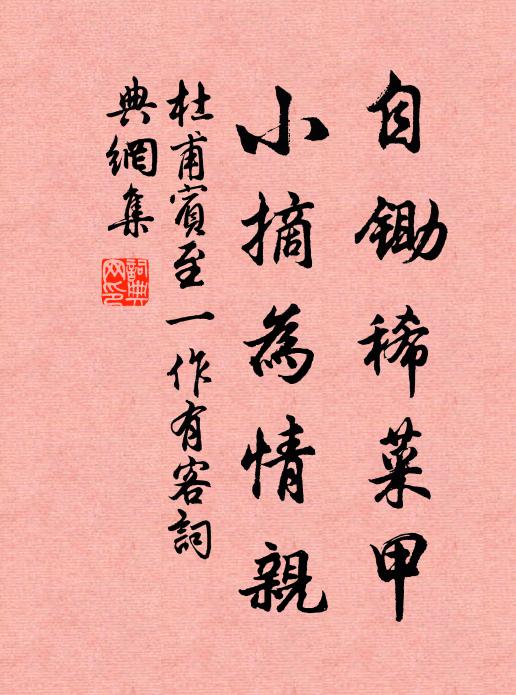 自鋤稀菜甲
小摘為情親
杜甫賓至一作有客詞
典網集
詞典
网印